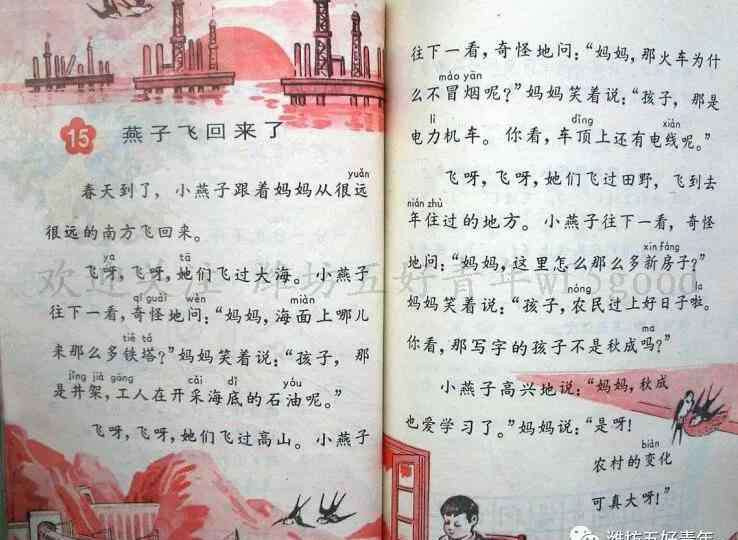 15 燕子飞回来了
yuǎn
春天到了，小燕子跟着妈妈从很远
很远的南方飞回来。
ya tā
飞呀，飞呀，她们飞过大海。小燕子
qí guài wèn miàn
往下一看，奇怪地问：“妈妈，海面上哪儿
tiě tǎ
来那么多铁塔？”妈妈笑着说：“孩子，那
jǐng jià gōng cǎi dǐ yóu
是井架，工人在开采海底的石油呢。”
飞呀，飞呀，她们飞过高山。小燕子
往下一看，奇怪地问：“妈妈，那火车为什
mào yān
么不冒烟呢？”妈妈笑着说：“孩子，那是
lì dǐng xiàn
电力机车。你看，车顶上还有电线呢。”
飞呀，飞呀，她们飞过田野，飞到去
nián zhù
年住过的地方。小燕子往下一看，奇怪
xīn fáng
地问：“妈妈，这里怎么那么多新房子？”
nóng la
妈妈笑着说：“孩子，农民过上好日子啦。
ma
你看，那写字的孩子不是秋成吗？”
小燕子高兴地说：“妈妈，秋成
也爱学习了。”妈妈说：“是呀！
biàn
农村的变化
可真大呀！”
欢迎关注 潍坊五好青年
潍坊五好青年